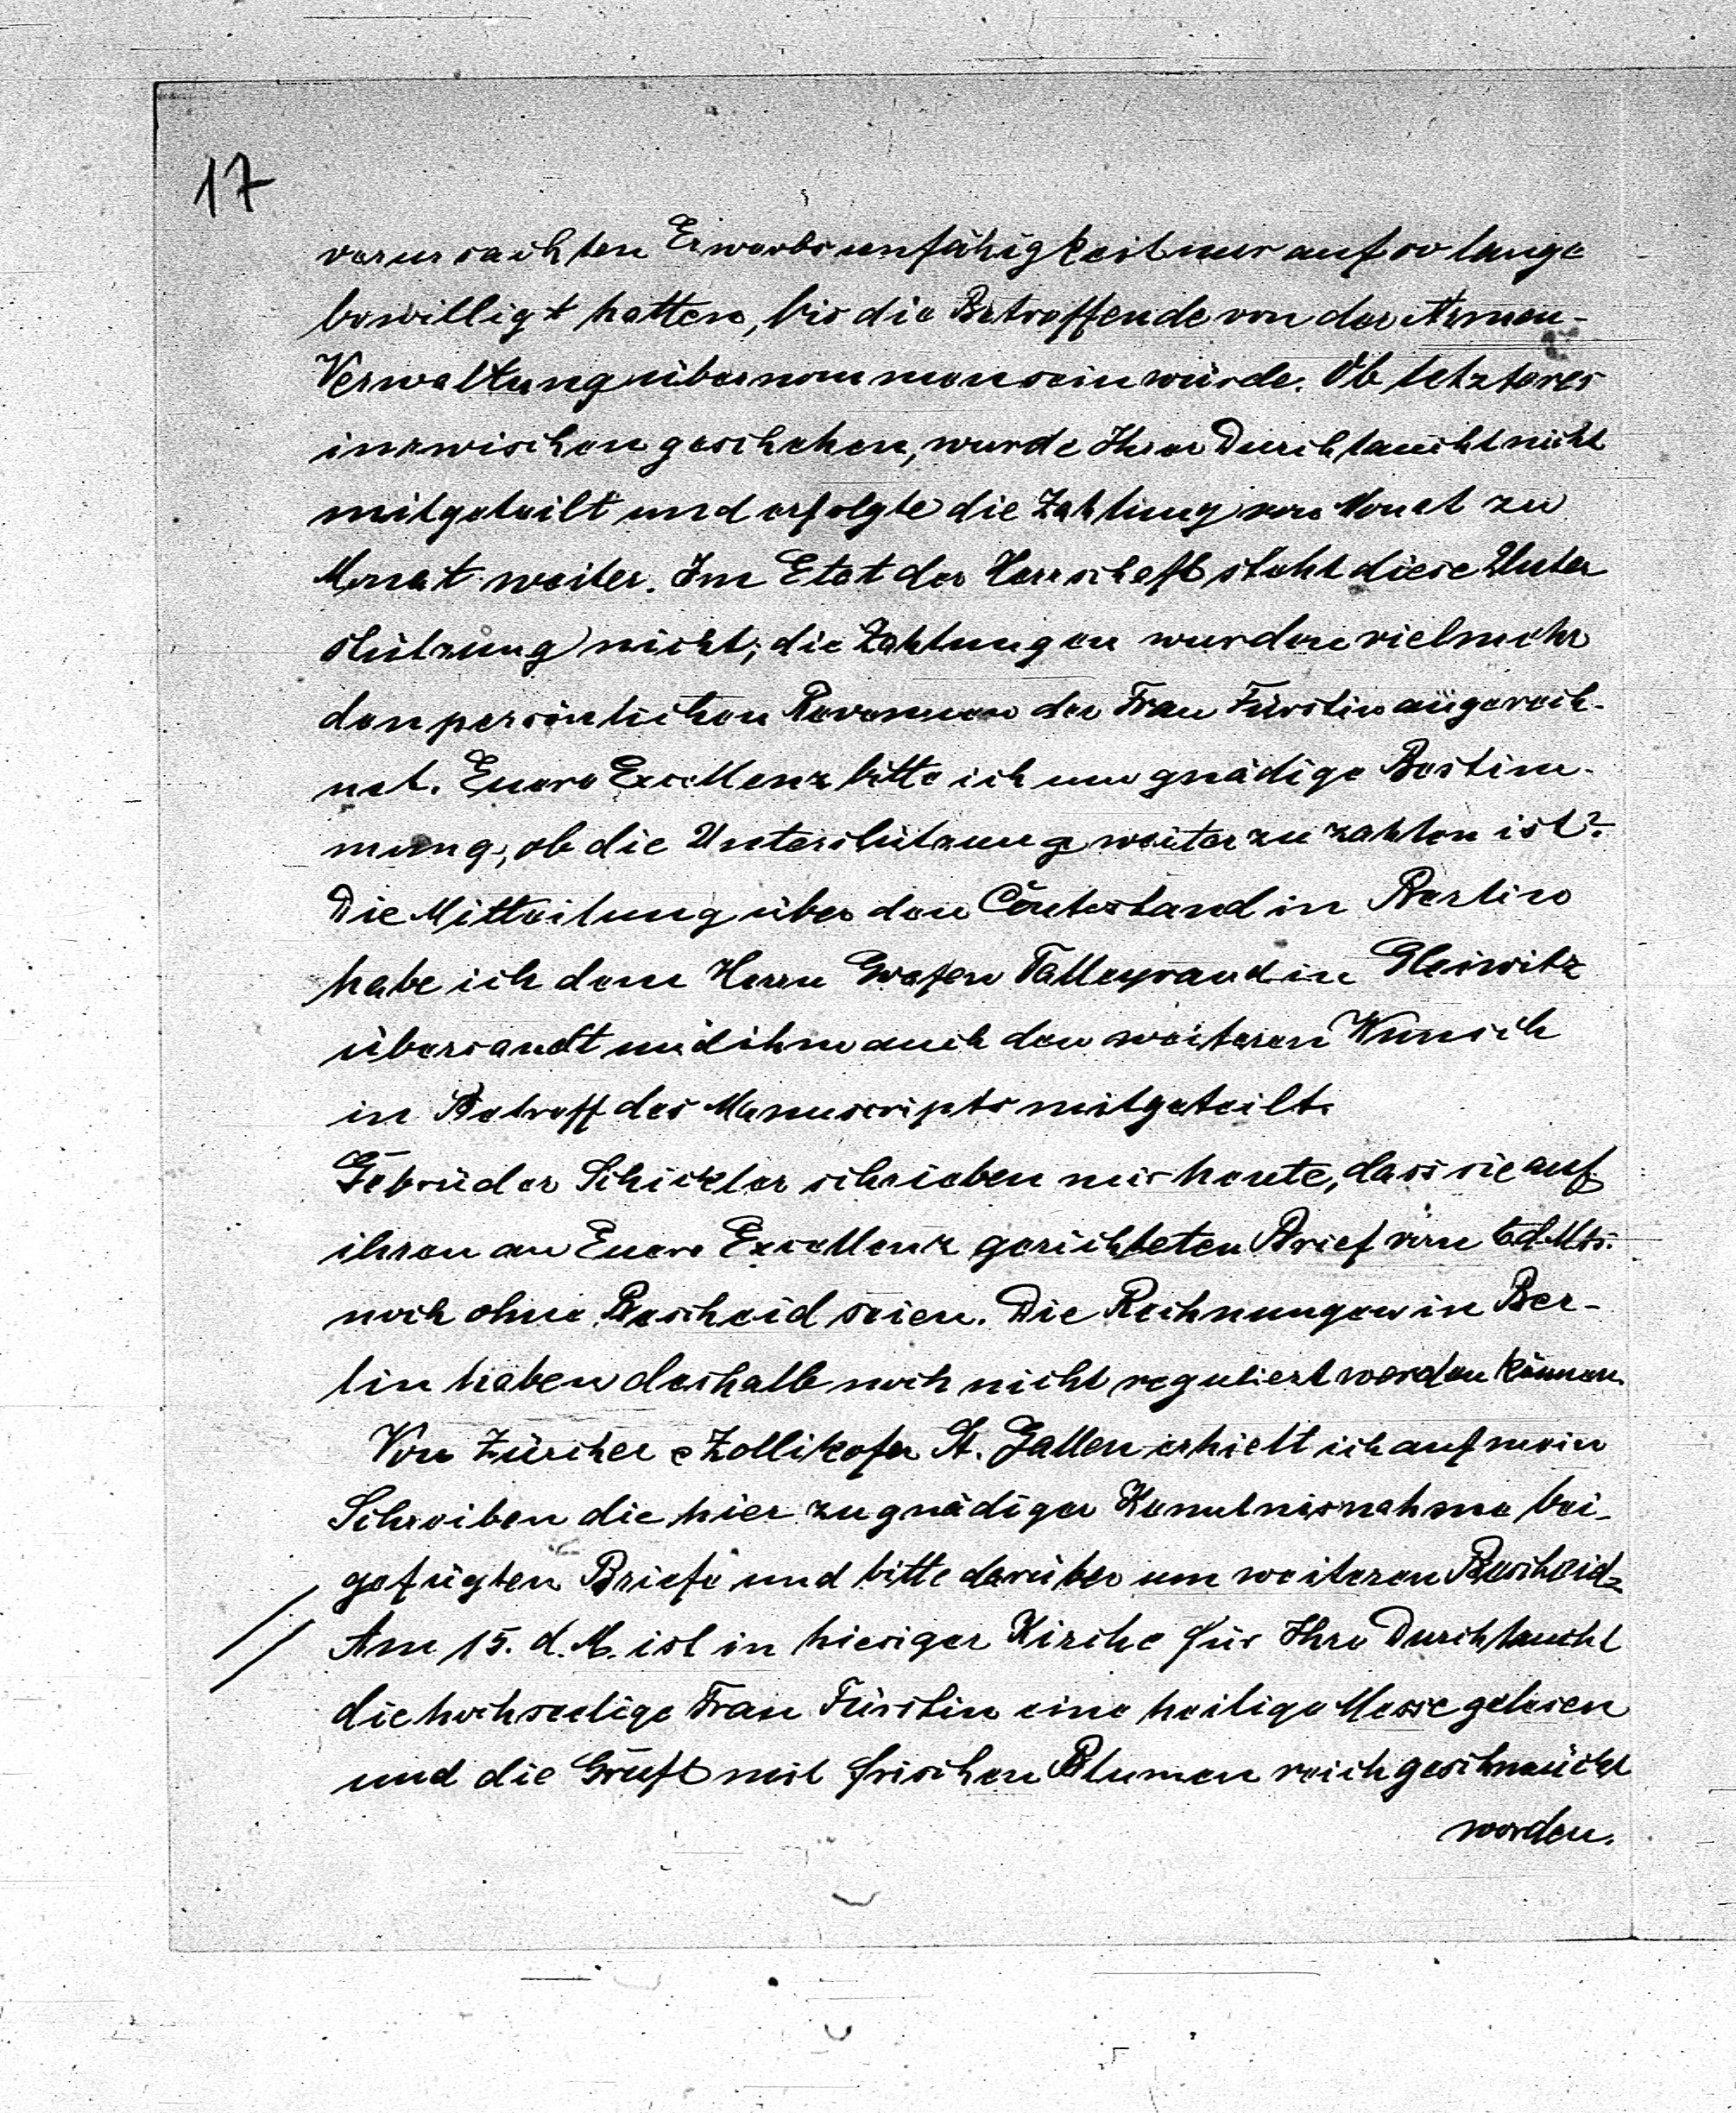 17
verursachten Erwerbsunfähigkeit nur auf so lange
bewilligt hatten, bis die Betreffende von der Armen-
Verwaltung übernommen sein würde. Ob letzteres
inzwischen geschehen, wurde Ihrer Durchlaucht nicht
mitgeteilt und erfolgte die Zahlung von Monat zu
Monat weiter. Im Etat der Herrschaft steht diese Unter
stützung nicht; die Zahlungen wurden vielmehr
den persönlichen Revenuen der Frau Fürstin angerech-
net. Euere Excellenz bitte ich um gnädige Bestim-
mung, ob die Unterstützung weiter zu zahlen ist?
Die Mitteilung über den Contestand in Berlin
habe ich dem Herrn Grafen Talleyrand in Gleiwitz
übersandt und ihm auch den weiteren Wunsch
in Betreff des Manuscripts mitgeteilt.
Gebrüder Schickler schrieben mir heute, dass sie auf
ihren an Euere Excellenz gerichteten Brief vom 6 d. Mts.
noch ohne Bescheid seien. Die Rechnungen in Ber-
lin haben deshalb noch nicht reguliert werden können.
Von Züricher & Zollikofer St. Gallen erhielt ich auf mein
Schreiben die hier zu gnädiger Kenntnisnahme bei-
gefügten Briefe und bitte darüber um weiteren Bescheid.
Am 15. d. M. ist in hiesiger Kirche für Ihre Durchlaucht
die hochseelige Frau Fürstin eine heilige Messe gelesen
und die Gruft mit frischen Blumen reich geschmückt
worden.